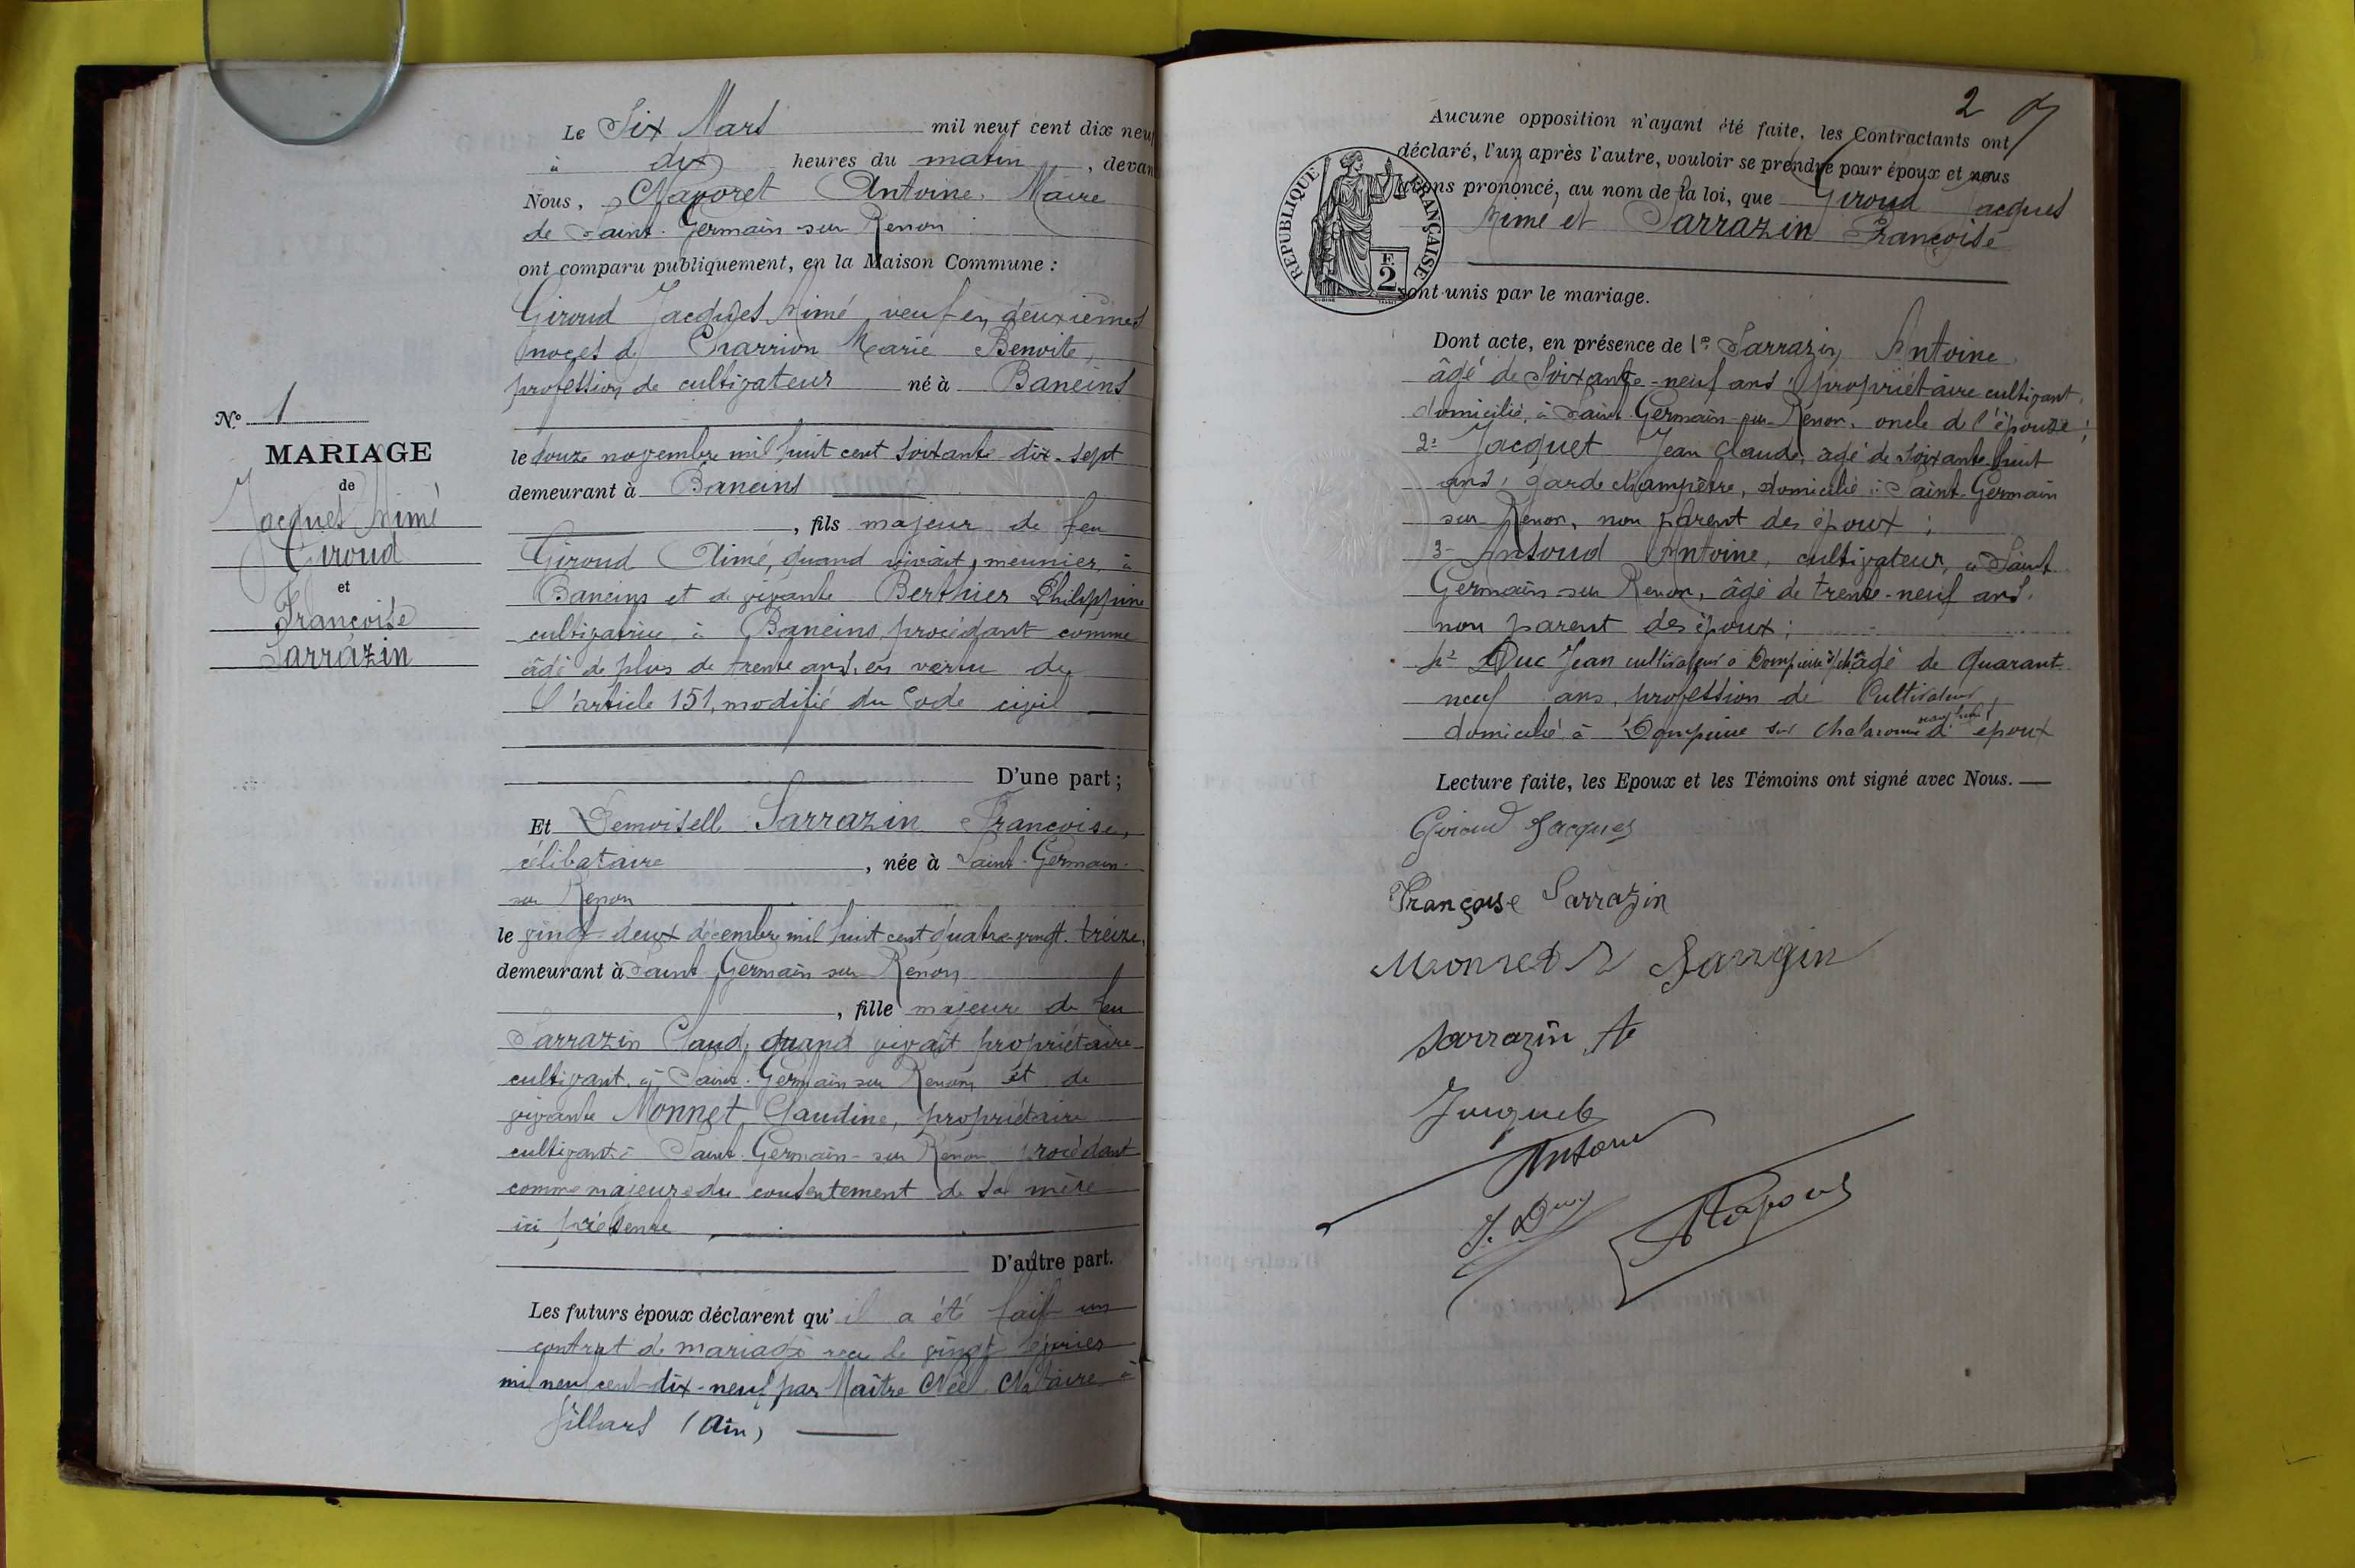 Le Six Mars mil neuf cent dix neuf
à dix heures du matin, devan
Nous, Antoine, Maire
de Saint-Germain sur Renon
ont comparu publiquement, en la Maison Commune :
Giroud Jacques Aimé, veuf en deuxièmes
noces de Marie Benoite,
profession de cultivateur né à Baneins
le douze novembre mil huit cent soixante-dix-sept
demeurant à Baneins
, fils majeur de feu
Giroud Aimé, quand vivait, meunier à
Baneins et de vivante Berthier Philippine
cultivatrice à Baneins, procédant comme
âgé de plus de trente ans, en vertu de
l'article 151, modifié du Code civil
D'une part ;
N° 1
MARIAGE
de
Jacques Aimé
Giroud
et
Françoise
Sarrazin
Et Demoisell Sarrazin Françoise,
célibataire, née à Saint-Germain-
sur Renon
le vingt-deux décembre mil huit cent quatre-vingt-treize,
demeurant à Saint Germain sur Renon
, fille majeure de feu
Sarrazin Claude, quand vivait propriétaire
cultivant à Saint-Germain sur Renon et de
vivante Monnet Claudine, propriétaire
cultivant à Saint-Germain-sur Renon procédant
comme majeure du consentement de sa mère
ici présente
D'autre part.
Les futurs époux déclarent qu'il a été fait un
contrat de mariage reçu le vingt février
mil neuf cent dix-neuf par Maître Notaire à
Villars (Ain)
2
Aucune opposition n'ayant été faite, les Contractants ont
déclaré, l'un après l'autre, vouloir se prendre pour époux et nous
avons prononcé, au nom de la loi, que Giroud Jacques
Aimé et Sarrazin Françoise
sont unis par le mariage.
RÉPUBLIQUE FRANÇAISE
F.
2
Dont acte, en présence de 1° Sarrazin Antoine
âgé de soixante-neuf ans, propriétaire cultivant,
domicilié à Saint-Germain-sur-Renon, oncle de l'épouse ;
2° Jacquet Jean Claude, âgé de soixante-huit
ans, garde champêtre, domicilié à Saint-Germain
sur Renon, non parent des époux ;
3° Antoine, cultivateur, à Saint
Germain-sur Renon, âgé de trente-neuf ans,
non parent des époux ;
4° Duc Jean cultivateur à Dompierre s/ch âgé de quarant
neuf ans, profession de Cultivateur
domicilié à Dompierre sur Chalaronne époux
Lecture faite, les Epoux et les Témoins ont signé avec Nous.
Giroud Jacques
Françoise Sarrazin
Sarrazin
Sarrazin Ae
Jacquet
J. Duc